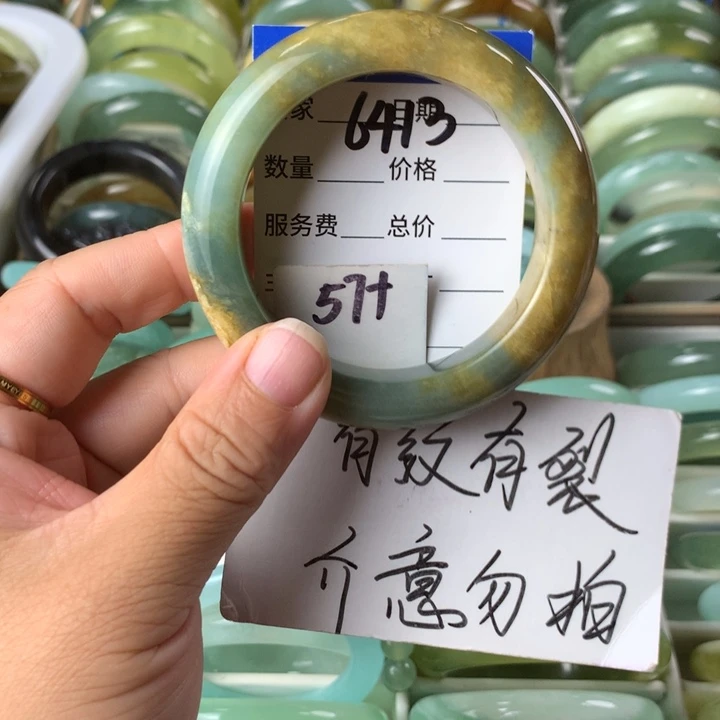 家____ 日期____
6413
数量____ 价格____
服务费____ 总价____
57+
有纹有裂
介意勿拍